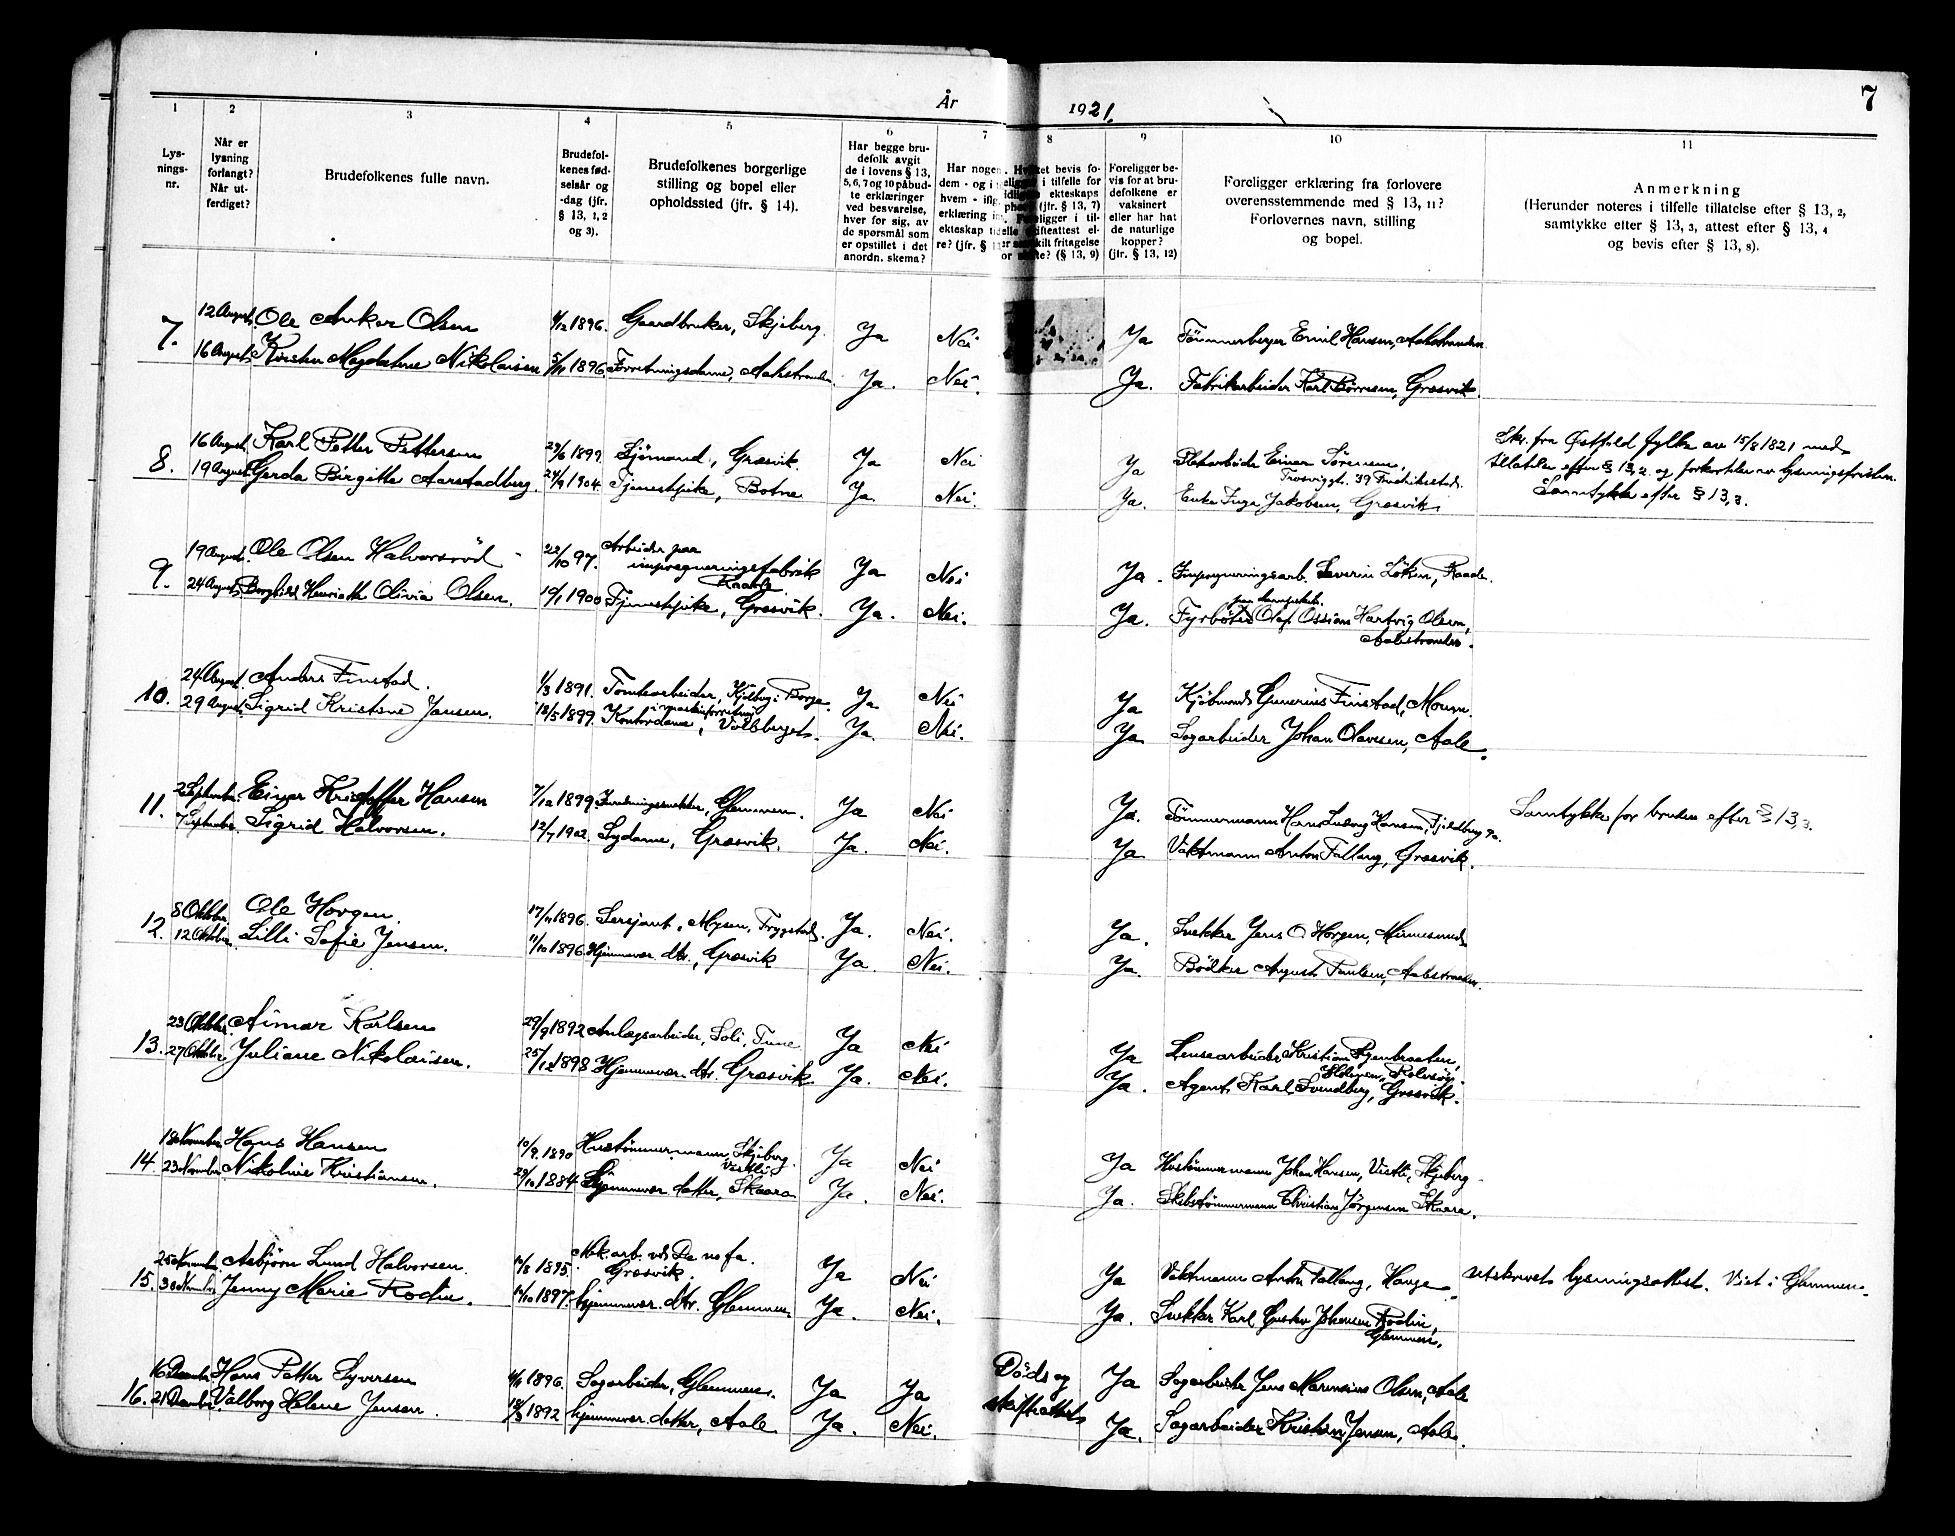 År 1921.
7
1 2 3 4 5 6 7 8 9 10 11
Lys-
nings-
nr.
Når er
lysning
forlangt?
Når ut-
ferdiget?
Brudefolkenes fulle navn.
Brudefol-
kenes fød-
selsår og
-dag (jfr.
§ 13, 1, 2
og 3).
Brudefolkenes borgerlige
stilling og bopel eller
opholdssted (jfr. § 14).
Har begge bru-
defolk avgit
de i lovens § 13,
5, 6, 7 og 10 påbud-
te erklæringer
ved besvarelse,
hver for sig, av
de spørsmål som
er opstillet i det
anordn. skema?
Har nogen
dem - og i
hvem - iflg.
erklæring
ekteskap
re? (jfr. §
bevis fo-
i tilfelle for
ekteskaps
(jfr. § 13, 7)
i til-
skifteattest el-
fritagelse
(§ 13, 9)
Foreligger be-
vis for at bru-
defolkene er
vaksinert
eller har hat
de naturlige
kopper?
(jfr. § 13, 12)
Foreligger erklæring fra forlovere
overensstemmende med § 13, 11?
Forlovernes navn, stilling
og bopel.
Anmerkning
(Herunder noteres i tilfelle tillatelse efter § 13, 2,
samtykke efter § 13, 3, attest efter § 13, 4
og bevis efter § 13, 8).
7. 12 August Ole Anker Olsen 4/12 1896. Gaardbruker, Skjeberg. Ja Nei Ja Tömmerberger Emil Hansen, Aalestranden.
16 August Kirsten Magdalene Nikolaisen 5/11 1896. Forretningsdame, Aalestranden. Ja. Nei. Ja. Fabrikarbeider Karl Börresen, Græsvik.
8. 16 August Karl Petter Pettersen 29/6 1899. Sjömand, Græsvik. Ja Nei Ja Einar Sörensen,
Trosviggt. 39 Fredrikstad.
Skr. fra Østfold fylke av 15/8 1821 med
tillatelse efter § 13, 2 og forkortelse av lysningsfristen.
Samtykke efter § 13, 3.
19 August Gerda Birgitte Aarstadberg. 24/9 1904. Tjenestpike, Botne Ja. Nei. Ja. Enke Inga Jakobsen, Græsvik.
9. 19 August. Ole Olsen Halvorsröd 22/10 97. Arbeider paa
impregneringsfabrik
Raade
Ja Nei Ja. Impregneringsarb. Severin Löken, Raade.
24 August Borghild Henriette Olivia Olsen. 19/1 1900 Tjenestpike, Græsvik. Ja. Nei. Ja. Fyrböter paa dampskib. Olaf Ossian Hartvig Olsen,
Aalestranden.
10. 24 August. Anders Finstad. 1/3 1891. Tomtearbeider, Kjölberg i Borge. Ja Nei Ja Kjöbmand Gunerius Finstad, Moum.
29 August. Sigrid Kristine Jansen. 18/5 1899. Kontordame i maskinforretning, Valsberget. Ja. Nei. Ja Sagarbeider Johan Olavesen, Aale.
11. 2 September. Einar Kristoffer Hansen 7/12 1899. Glemmen. Ja Nei Ja. Tömmermann Hans Ludvig Hansen, Samtykke for bruden efter § 13, 3.
7 September. Sigrid Halvorsen. 12/7 1902. Sydame, Græsvik. Ja. Nei. Ja Vaktmann Anton Tallang, Græsvik.
12. 8 Oktober. Ole Horgen 17/11 1896. Sersjant, Mysen, Trygstad. Ja. Nei. Ja. Snekker Jens O Horgen, Minnesund
12 Oktober. Lilli Sofie Jensen. 11/10 1896. Hjemmevær. dtr., Græsvik Ja. Nei. Ja. Bödker August Paulsen, Aalestranden.
13. 23 Oktober. Aimar Karlsen 29/9 1892 Anlægsarbeider, Soli, Tune Ja Nei Ja Lensearbeider Kristian
Holmen, Rolvsöy.
27 Oktober Juliane Nikolaisen. 25/12 1898 Hjemmevær. dtr. Græsvik. Ja. Nei. Ja. Agent Karl Svendberg, Græsvik.
14. 18 November Hans Hansen 10/9. 1890 Hustömmermann, Skjeberg.
Viettli
Ja Nei Ja Hustömmermann Johan Hansen, Viettli, Skjeberg
23 November Nikoline Kristiansen. 29/10 1884 Hjemmevær datter, Skaara Ja. Nei. Ja. Skibstömmermann Christian Jørgensen Skaara.
15. 25 November. Asbjørn Lund Halvorsen. 14/8 1895. Mek. arb. ved De no fa.
Græsvik.
Ja Nei Ja Vaktmann Anton Tallang, Hauge Utskrevet lysningsattest. Viet i Glemmen.
30 November Jenny Marie Rodin. 14/10 1897. hjemmevær. dtr. Glemmen. Ja. Nei. Ja. Snekker Karl Gustav Johansen Rodin,
Glemmen.
16. 16 Desember Hans Petter Syversen 4/11 1896. Sagarbeider, Glemmen. Ja Ja Döds og
skifteattest
Ja Sagarbeider Jens Marensius Olsen, Aale
21 Desember. Valborg Helene Jensen. 12/3 1892 hjemmevær. datter, Aale Ja. Nei. Ja. Sagarbeider Kristian Jensen, Aale.